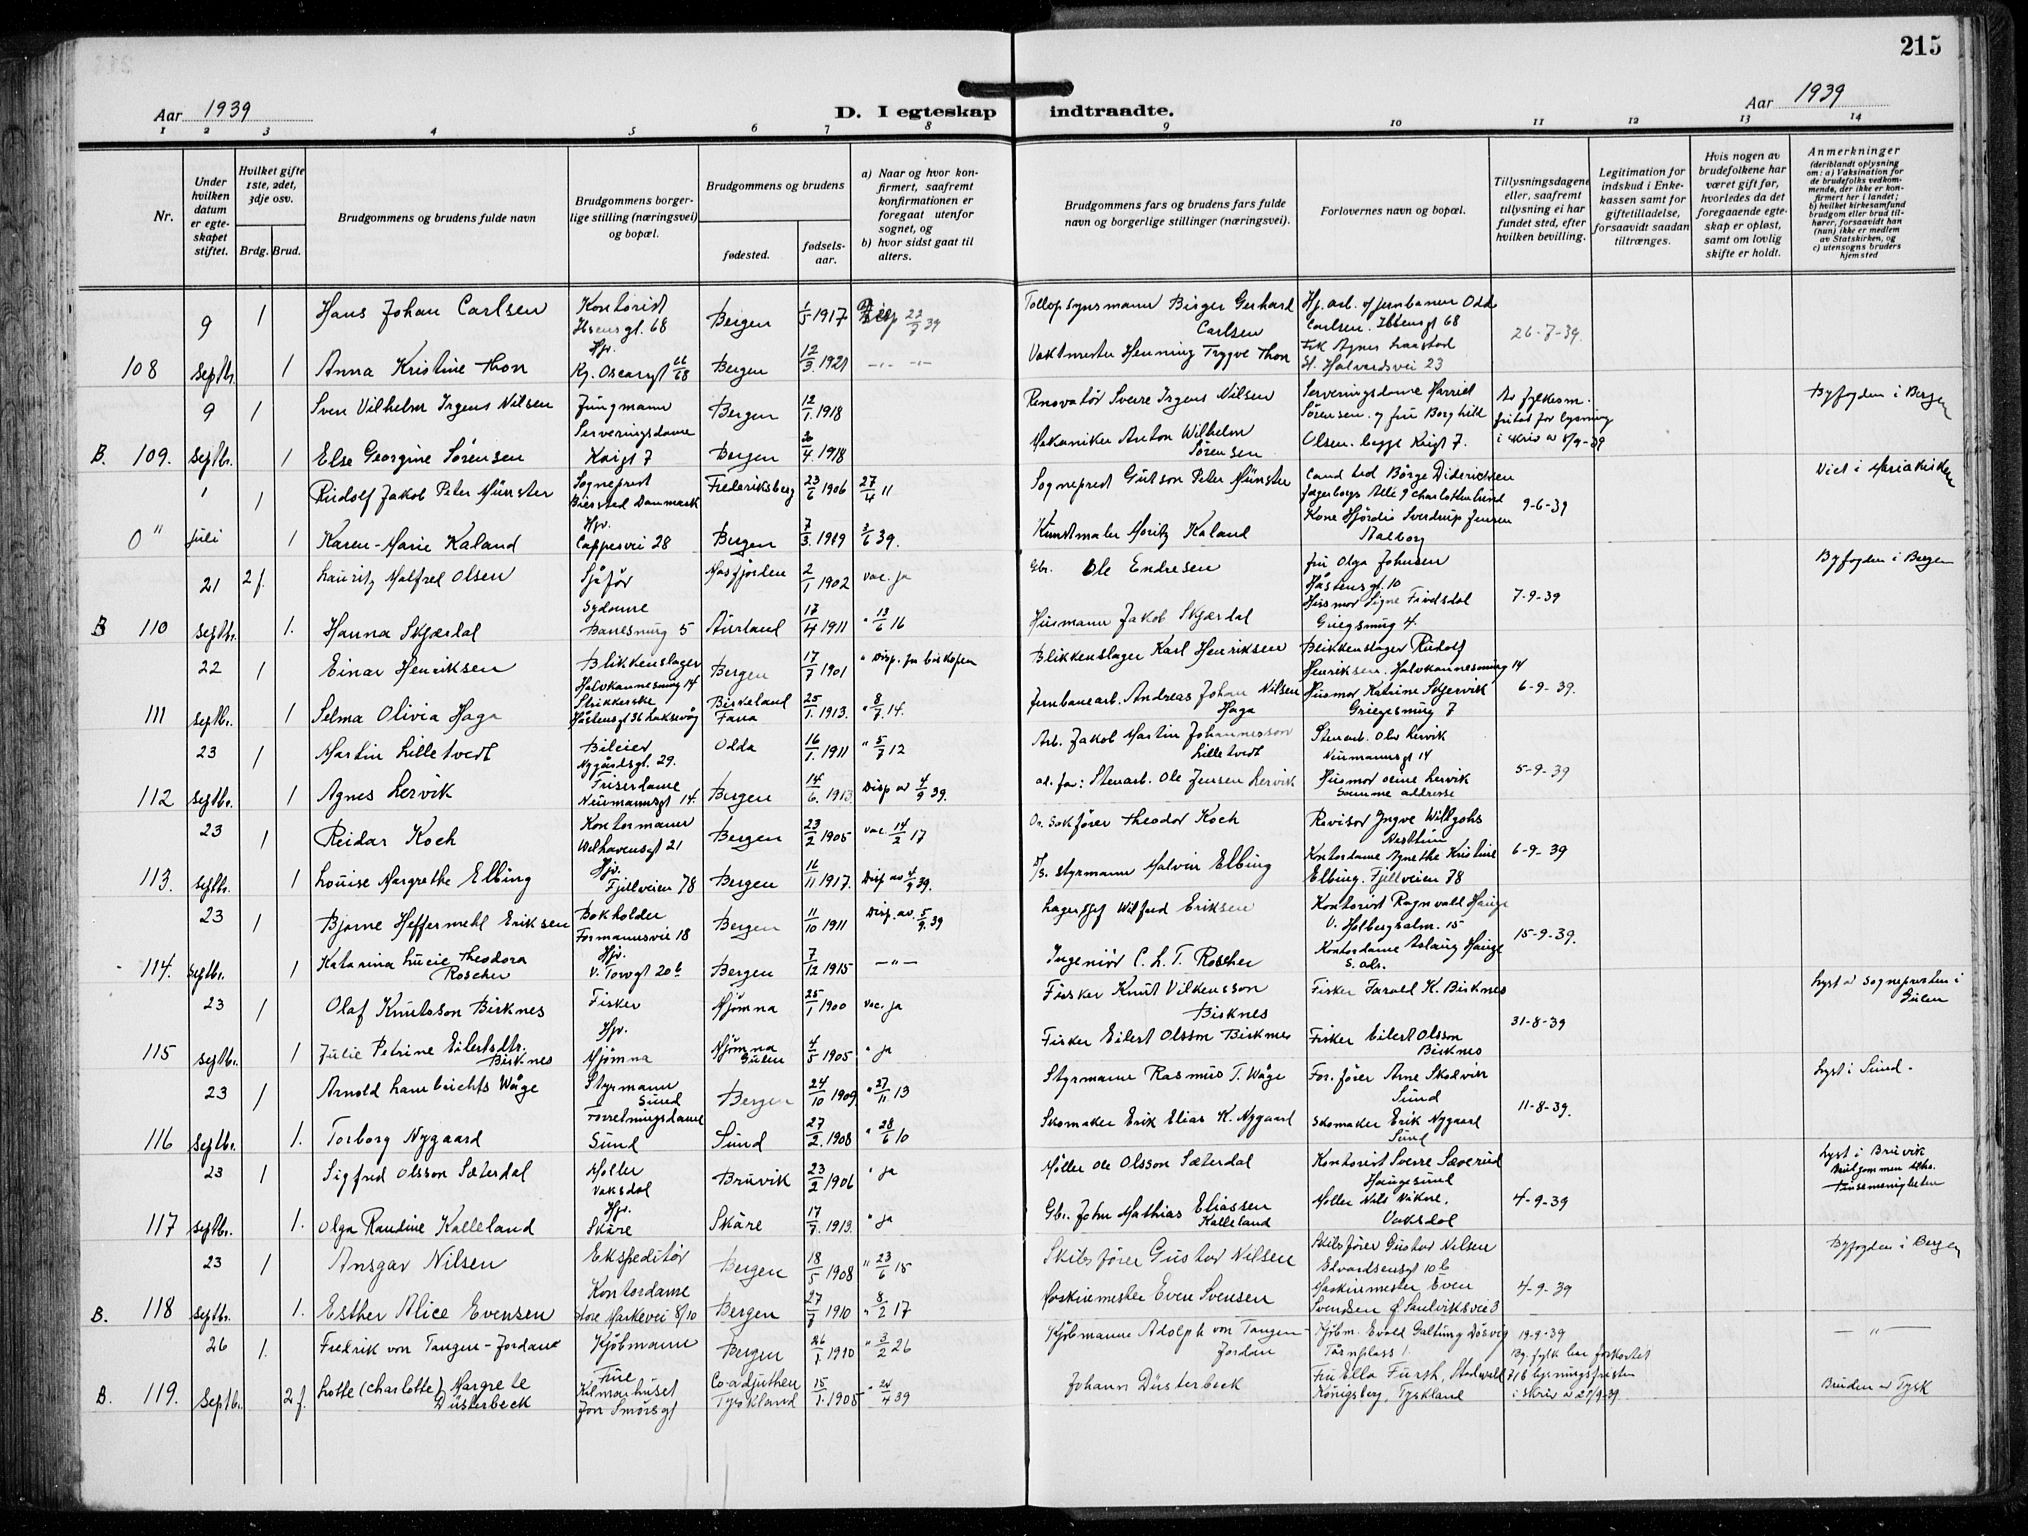 215
Aar 1939
D. I egteskap indtraadte.
Aar 1939
1 2 3 4 5 6 7 8 9 10 11 12 13 14
Nr.
Under hvilken datum er egteskapet stiftet.
Hvilket gifte 1ste, 2det, 3dje osv.
Brdg. Brud.
Brudgommens og brudens fulde navn
Brudgommens borgerlige stilling (næringsvei) og bopæl.
Brudgommens og brudens
fødested.
fødsels-aar.
a) Naar og hvor konfirmert, saafremt konfirmationen er foregaat utenfor sognet, og
b) hvor sidst gaat til alters.
Brudgommens fars og brudens fars fulde navn og borgerlige stillinger (næringsvei).
Forlovernes navn og bopæl.
Tillysningsdagene eller, saafremt tillysning ei har fundet sted, efter hvilken bevilling.
Legitimation for indskud i Enkekassen samt for giftetilladelse, forsaavidt saadan tiltrænges.
Hvis nogen av brudefolkene har været gift før, hvorledes da det foregaaende egteskap er opløst, samt om lovlig skifte er holdt.
Anmerkninger
(deriblandt oplysning om: a) Vaksination for de brudefolks vedkommende, der ikke er konfirmert her i landet;
b) hvilket kirkesamfund brudgom eller brud tilhører, forsaavidt han (hun) ikke er medlem av Statskirken, og
c) utensogns bruders hjemsted
9 1 Hans Johan Carlsen Kontorist Ibsensgt. 68 Bergen 1/5 1917 Disp 22/7 39 Tollopsynsmann Birger Gerhard Carlsen Hj. arb. v/ jernbanen Odd Carlsen. Ibsensgt 68 26-7-39.
108 Septbr. 1 Anna Kristine Thon Hjv. Kg. Oscarsgt 66/68 Bergen 12/3 1921 -"- -"- Vaktmester Henning Trygve Thon Frk Agnes Laastad St. Halvardsvei 23
9 1 Sven Vilhelm Irgens Nilsen Jungmann Bergen 12/1 1918 Renovatør Sverre Irgens Nilsen Serveringsdame Harriet Sørensen. og fru Borghild Av fylkesm. fritat for lysning Byfogden i Bergen
B. 109. Septbr. 1 Else Georgine Sørensen Serveringsdame Krigt 7 Bergen 30/4 1918 Mekaniker Anton Wilhelm Sørensen Olsen. begge Krigt 7. i skriv av 8/9-39
1 1 Rudolf Jakob Peter Münster Sogneprest Biersted Danmark Frederiksberg 23/6 1906 27/4 11 Sogneprest Gutson Peter Münster Cand led Börge Diderichsen Jægerborgs Alle 9 Charlottenlund 9-6-39 Viet i Mariakirken
0" Juli 1 Karen-Marie Kaland Hjv. Cappesvei 28 Bergen 7/3 1919 3/6 39. Kunstmaler Moritz Kaland Kone Hjördis Sverdrup Jensen Aalborg
21 2 f. Lauritz Malfred Olsen Sjåfør Masfjorden 2/1 1902 vac. ja Gbr. Ole Endresen Fru Olga Johnsen Håstensgt. 10 7-9-39 Byfogden i Bergen
B 110 Septbr. 1. Hanna Skjærdal Sydame Banesmug 5 Aurland 17/4 1911 " 13/6 16 Husmann Jakob Skjærdal Husmor Signe Fivelsdal Griegsmug 4.
22 1 Einar Henriksen Blikkenslager Halvkannesmug 14 Bergen 17/7 1901 " Disp. fra biskopen Blikkenslager Karl Henriksen Blikkenslager Rudolf Henriksen. Halvkannesmug 14 6-9-39.
111 Septbr. 1 Selma Olivia Haga Strikkerske Håstensgt 36 Laksevåg Birkeland Fana 25/1. 1913. " 8/7. 14. Jernbanearb. Andreas Johan Nilsen Haga Husmor Katrine Skjervik Griegsmug 7
23 1 Martin Lilletvedt Bileier Nygårdsgt. 29. Odda 16/1. 1911 " 5/7 12 Arb. Jakob Martin Johannesson Lilletvedt Stenarb. Olav Lervik Neumannsgt 14 5-9-39
112 Septbr. 1 Agnes Lervik Friserdame Neumannsgt 14. Bergen 14/6. 1913 Disp av 4/9 39. ad. far: Stenarb. Ole Jensen Lervik Husmor Oline Lervik Samme addresse
23 1 Reidar Koch Kontormann Welhavensgt 21 Bergen 23/2 1905 vac. 14/2 17 Or. Sakfører Theodor Koch Revisor Yngve Willgohs Nesttun 6-9-39
113. Septbr. 1 Louise Margrethe Elbing Hjv. Fjellveien 78 Bergen 16/11 1917. Disp av 4/9 39. Styrmann Malvin Elbing Kontordame Agnethe Kristine Elbing. Fjellveien 78
23 1 Bjarne Heffermehl Eriksen Bokholder Formannsvei 18 Bergen 11/10 1911 Disp. av. 5/9. 39 Lagersjef Wilfred Eriksen Kontorist Ragnvald Hauge V. Holbergsalm. 15 15-9-39.
114. Septbr. 1 Katarina Lucie Theodora Roscher Hjv. V. Torvgt 20b Bergen 7/12 1915 -"- Ingeniør C. L. T. Roscher Kontordame Aslaug Hauge S. ads.
23 1 Olaf Knutsson Birknes Fisker Mjømna 25/1 1900 vac. ja Fisker Knut Vilkensson Birknes Fisker Harald K. Birknes 31-8-39 Lyst av sognepresten i Gulen
115 Septbr. 1 Julie Petrine Eilertsdtr. Birknes Hjv. Mjømna Mjømna Gulen 4/5 1905 " ja Fisker Eilert Olsson Birknes Fisker Eilert Olsson Birknes
23 1 Arnold Lambrichts Wåge Styrmann Sund Bergen 24/10 1909 " 27/11 13 Styrmann Rasmus T. Wåge For. fører Arne Skolvier Sund 11-8-39. Lyst i Sund.
116 Septbr. 1. Torborg Nygaard Forretningsdame Sund Sund 27/2. 1908 " 28/6 10 Skomaker Erik Elias K. Nygaard Skomaker Erik Nygaard Sund
23 1 Sigfred Olsson Sæterdal Møller Vaksdal Bruvik 23/2 1906 " ja Møller Ole Olsson Sæterdal Kontorist Sverre Sæverud Haugesund 4-9-39 Lyst i Bruvik Brudgommen tilh. Pinsemenigheten
117 Septbr. 1. Olga Randine Kalleland Hjv. Skåre Skåre 17/7. 1913. " ja Gbr. John Mathias Eliassen Kalleland Møller Nils Vikne. Vaksdal
23 1 Ansgar Nilsen Ekspeditør Bergen 18/5 1908 " 23/6 15 Skibsfører Gustav Nilsen Skibsfører Gustav Nilsen Edvardsensgt 10b 4-9-39 Byfogden i Bergen
B. 118 Septbr. 1. Esther Alice Evensen Kontordame Store Markevei 8/10 Bergen 27/7 1910 " 8/2 17 Maskinmester Even Svensen Maskinmester Even Svendsen Ø Sandviksvei 3
26 1. Fredrik von Tangen-Jordan Kjøbmann Bergen 26/1. 1910 " 3/2 26 Kjøbmann Adolph von Tangen-Jordan Kjøbm. Evald Galtung Døsvig Tårnplass 1. 19-9-39 By. fylk har forkortet -"-
B. 119. Septbr. 2 f. Lotte (Charlotte) Margrete Düsterbeck Frue Kilmarhuset Jon Smørsgt Co-adjuthen Tyskland 15/1. 1905 " 24/4 39 Johann Düsterbeck Fru Ella Fursth, Stadwald 716 Königsberg, Tyskland lysningsfristen i skriv av 21/9-39. Bruden er Tysk